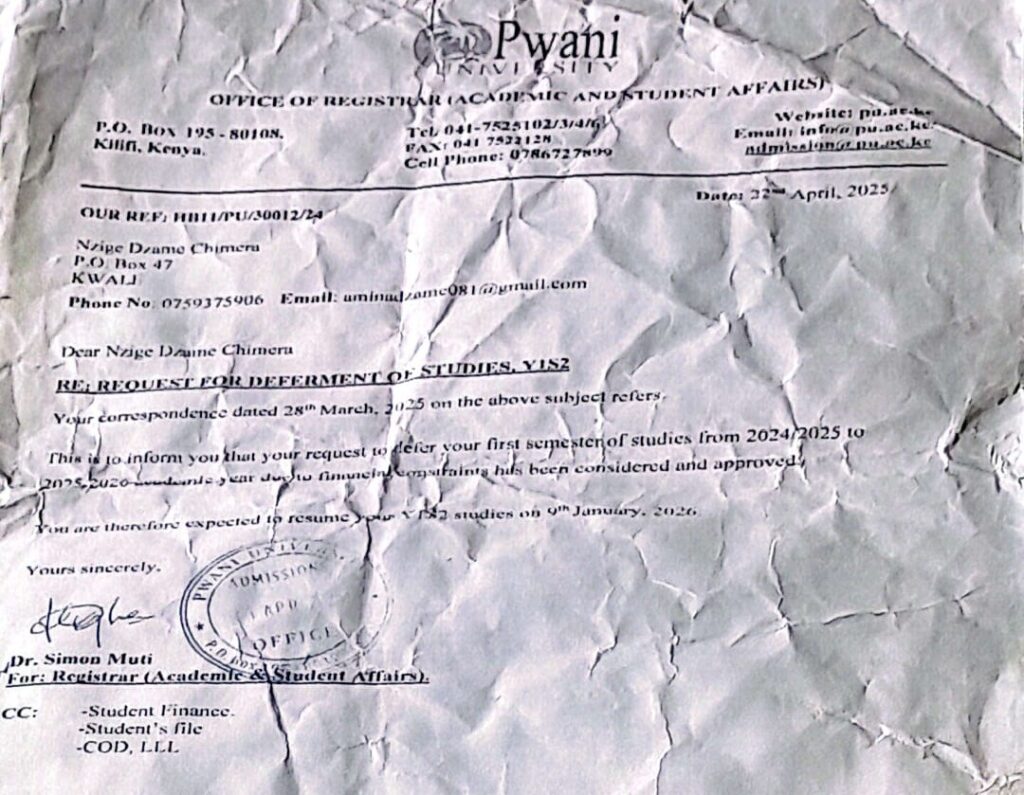 Pwani
UNIVERSITY
OFFICE OF REGISTRAR (ACADEMIC AND STUDENT AFFAIRS)
P.O. Box 195 - 80108,
Kilifi, Kenya.
Tel: 041-7525102/3/4/6
FAX: 041 7522128
Cell Phone: 0786727899
Website: pu.ac.ke
Email: info@pu.ac.ke
admission@pu.ac.ke
Date: 22nd April, 2025
OUR REF: HB11/PU/30012/24
Nzige Dzame Chimera
P.O. Box 47
KWALE
Phone No. 0759375906 Email: aminadzame081@gmail.com
Dear Nzige Dzame Chimera
RE: REQUEST FOR DEFERMENT OF STUDIES, Y1S2
Your correspondence dated 28th March, 2025 on the above subject refers.
This is to inform you that your request to defer your first semester of studies from 2024/2025 to
2025/2026 academic year due to financial constraints has been considered and approved.
You are therefore expected to resume your Y1S2 studies on 9th January, 2026.
Yours sincerely,
PWANI UNIVERS
ADMISSION
OFFICE
P.O. Box
Dr. Simon Muti
For: Registrar (Academic & Student Affairs).
CC: -Student Finance.
-Student's file
-COD, LLL